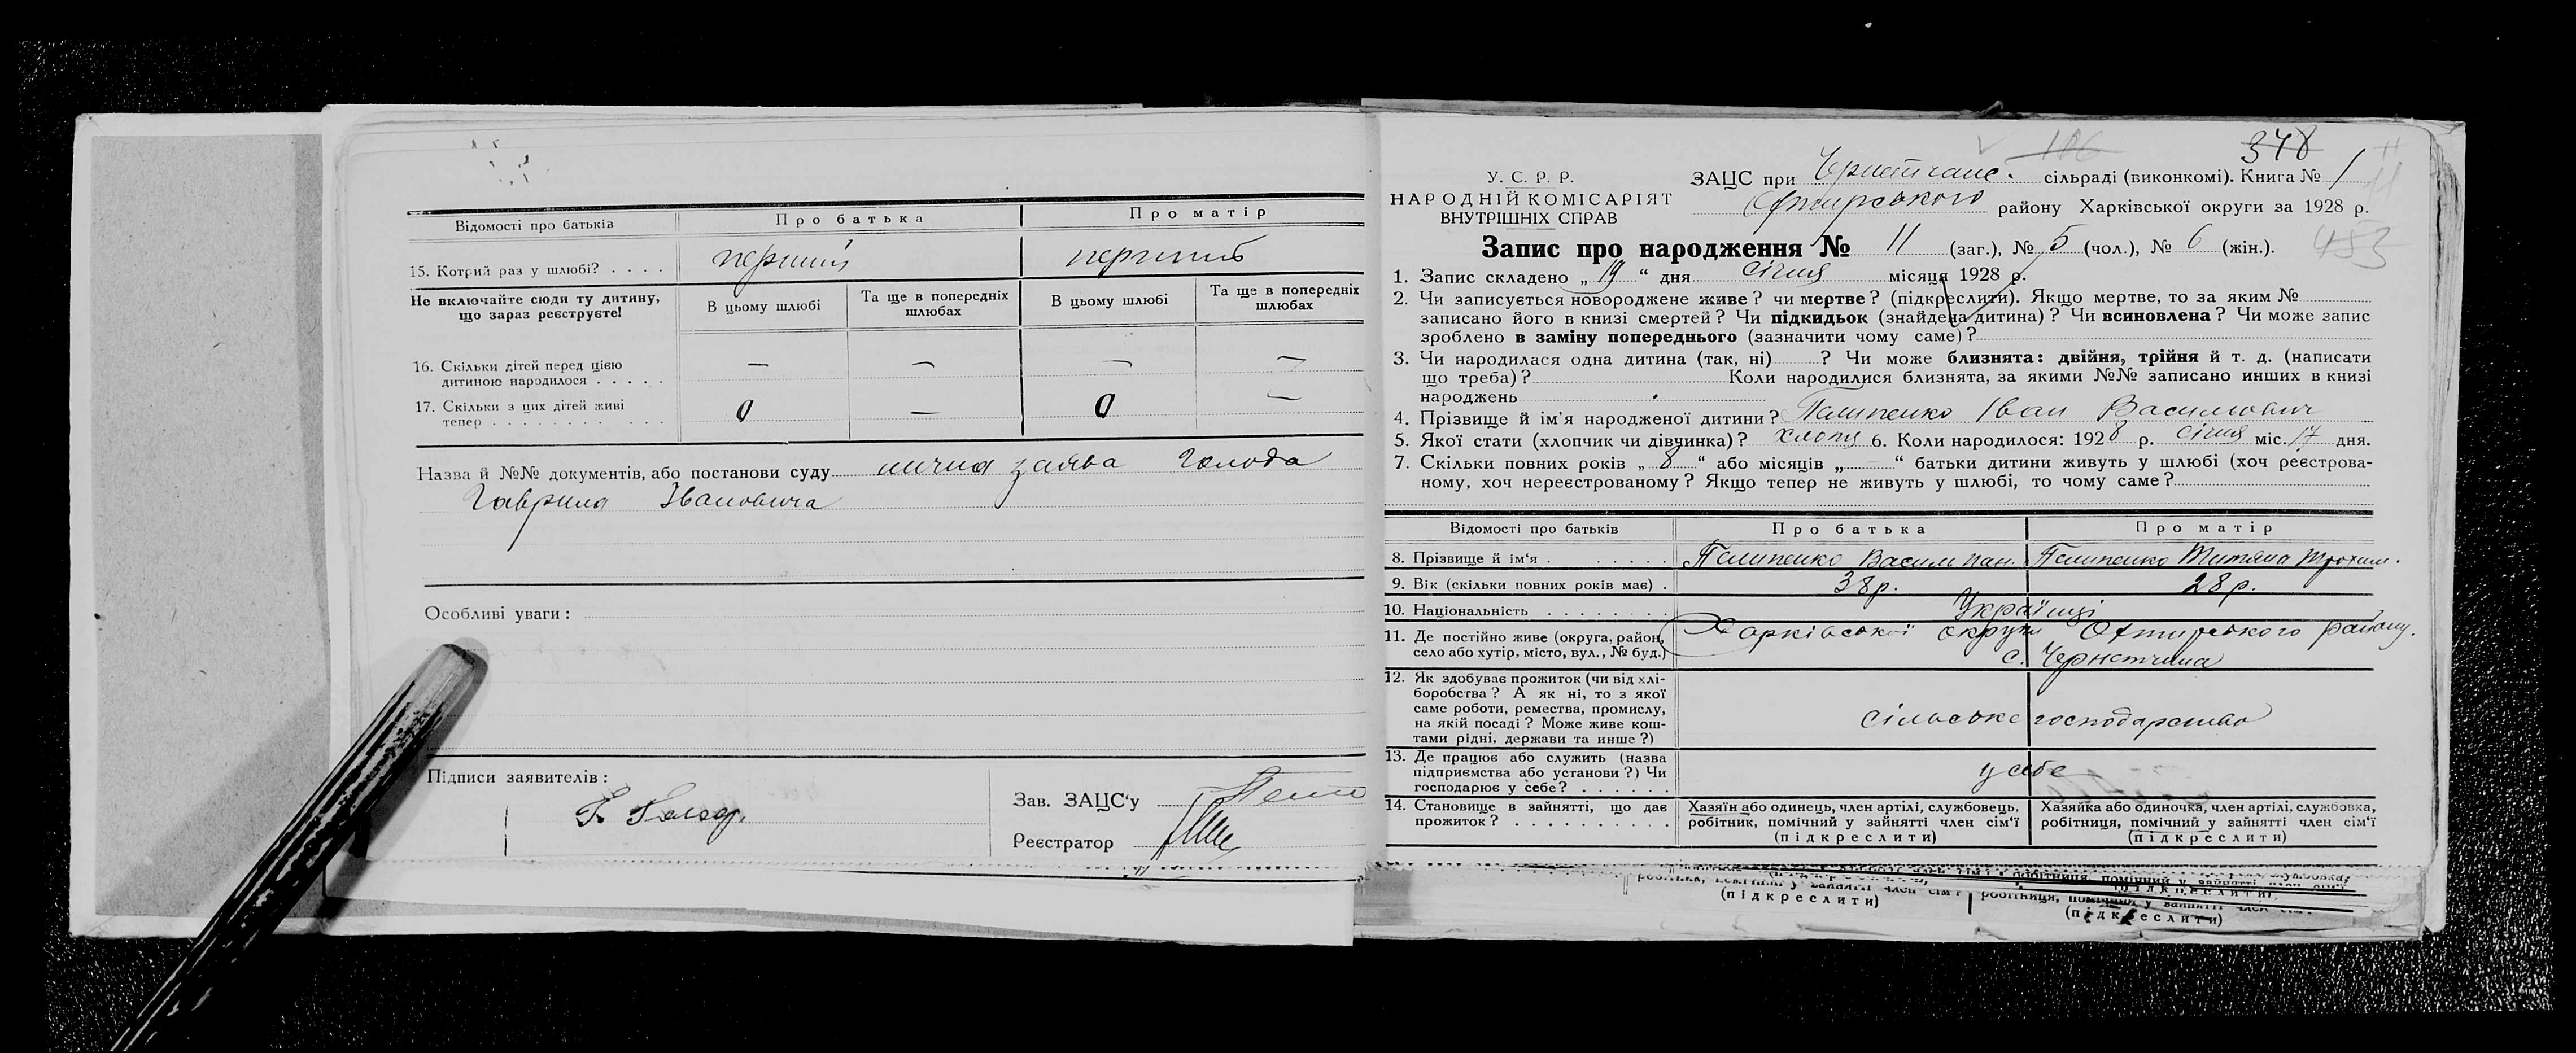 Відомості про батьків
Про батька
Про матір
15. Котрий раз у шлюбі? . . . .
перший
перший
Не включайте сюди ту дитину, що зараз реєструєте!
В цьому шлюбі
Та ще в попередніх шлюбах
В цьому шлюбі
Та ще в попередніх шлюбах
16. Скільки дітей перед цією
дитиною народилося . . . . .
— — — —
17. Скільки з цих дітей живі
тепер . . . . . . . . . . . .
0 — 0 —
Назва й №№ документів, або постанови суду лична заява Голода
Гаврила Івановича
Особливі уваги:
Підписи заявителів:
Г. Голод.
Зав. ЗАЦС'у
Реєстратор
348
У. С. Р. Р.
НАРОДНІЙ КОМІСАРІЯТ
ВНУТРІШНІХ СПРАВ
ЗАЦС при Чернетчанс. сільраді (виконкомі). Книга № 1
Охтирського району Харківської округи за 1928 р.
Запис про народження № 11 (заг.), № 5 (чол.), № 6 (жін.).
453
1. Запис складено „ 19 “ дня січня місяця 1928 р.
2. Чи записується новороджене живе? чи мертве? (підкреслити). Якщо мертве, то за яким №
записано його в книзі смертей? Чи підкидьок (знайдена дитина)? Чи всиновлена? Чи може запис
зроблено в заміну попереднього (зазначити чому саме)?
3. Чи народилася одна дитина (так, ні) ......? Чи може близнята: двійня, трійня й т. д. (написати
що треба)? Коли народилися близнята, за якими №№ записано инших в книзі
народжень
4. Прізвище й ім'я народженої дитини? Пелипенко Іван Васильович
5. Якої стати (хлопчик чи дівчинка)? хлопц 6. Коли народилося: 1928 р. січня міс. 17 дня.
7. Скільки повних років „ 8 “ або місяців „ — “ батьки дитини живуть у шлюбі (хоч реєстрова-
ному, хоч нереєстрованому? Якщо тепер не живуть у шлюбі, то чому саме?
Відомості про батьків
Про батька
Про матір
8. Прізвище й ім'я . . . . . . .
Пелипенко Василь Пан.
Пелипенко Титяна Трохим.
9. Вік (скільки повних років має) .
38 р.
28 р.
10. Національність . . . . . . . .
Українці
11. Де постійно живе (округа, район,
село або хутір, місто, вул., № буд.)
Харківської округи Охтирського району.
с. Чернетчина
12. Як здобуває прожиток (чи від хлі-
боробства? А як ні, то з якої
саме роботи, ремества, промислу,
на якій посаді? Може живе кош-
тами рідні, держави та инше?)
сільське господарство
13. Де працює або служить (назва
підприємства або установи?) Чи
господарює у себе? . . . . . .
у себе
14. Становище в зайнятті, що дає
прожиток? . . . . . . . . . . .
Хазяїн або одинець, член артілі, службовець,
робітник, помічний у зайнятті член сім'ї
(підкреслити)
Хазяйка або одиночка, член артілі, службовка,
робітниця, помічний у зайнятті член сім'ї
(підкреслити)
робітниця, помічний у зайнятті член сім'ї
(підкреслити)
(підкреслити)